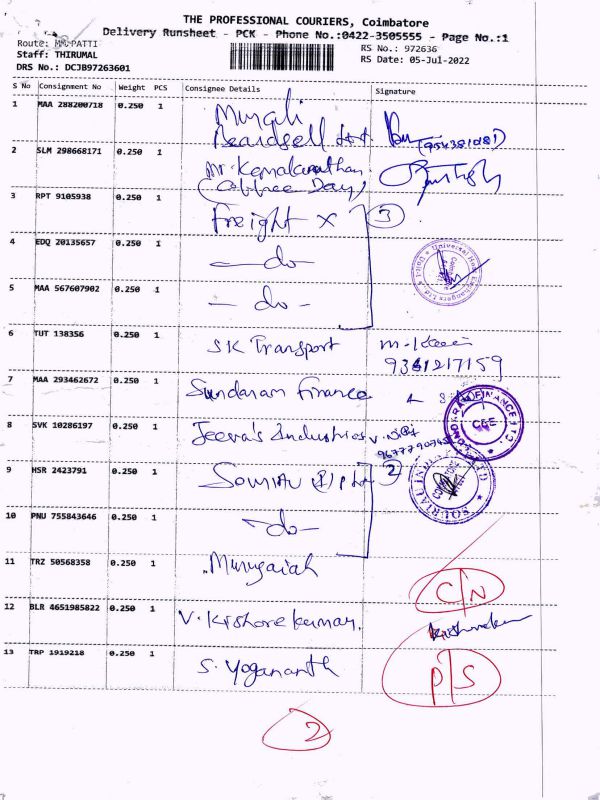 THE PROFESSIONAL COURIERS, Coimbatore
Delivery Runsheet - PCK - Phone No.:0422-3505555 - Page No.:1
Route: MM PATTI
Staff: THIRUMAL
DRS No.: DCJB97263601
RS No.: 972636
RS Date: 05-Jul-2022
S No Consignment No Weight PCS Consignee Details Signature
1 MAA 288200718 0.250 1 Murali
2 SLM 298668171 0.250 1
3 RPT 9105938 0.250 1 Freight x 3
4 EDQ 20135657 0.250 1 - do -
5 MAA 567607902 0.250 1 - do -
6 TUT 138356 0.250 1 SK Transport
9361217159
7 MAA 293462672 0.250 1 Sundaram Finance
8 SVK 10286197 0.250 1 Jeeva's Industries
9 HSR 2423791 0.250 1 2
10 PNU 755843646 0.250 1 - do -
11 TRZ 50568358 0.250 1 Murugaiah C/N
12 BLR 4651985822 0.250 1 V. Kishore kumar.
13 TRP 1919218 0.250 1 S. Yogananth P/S
2